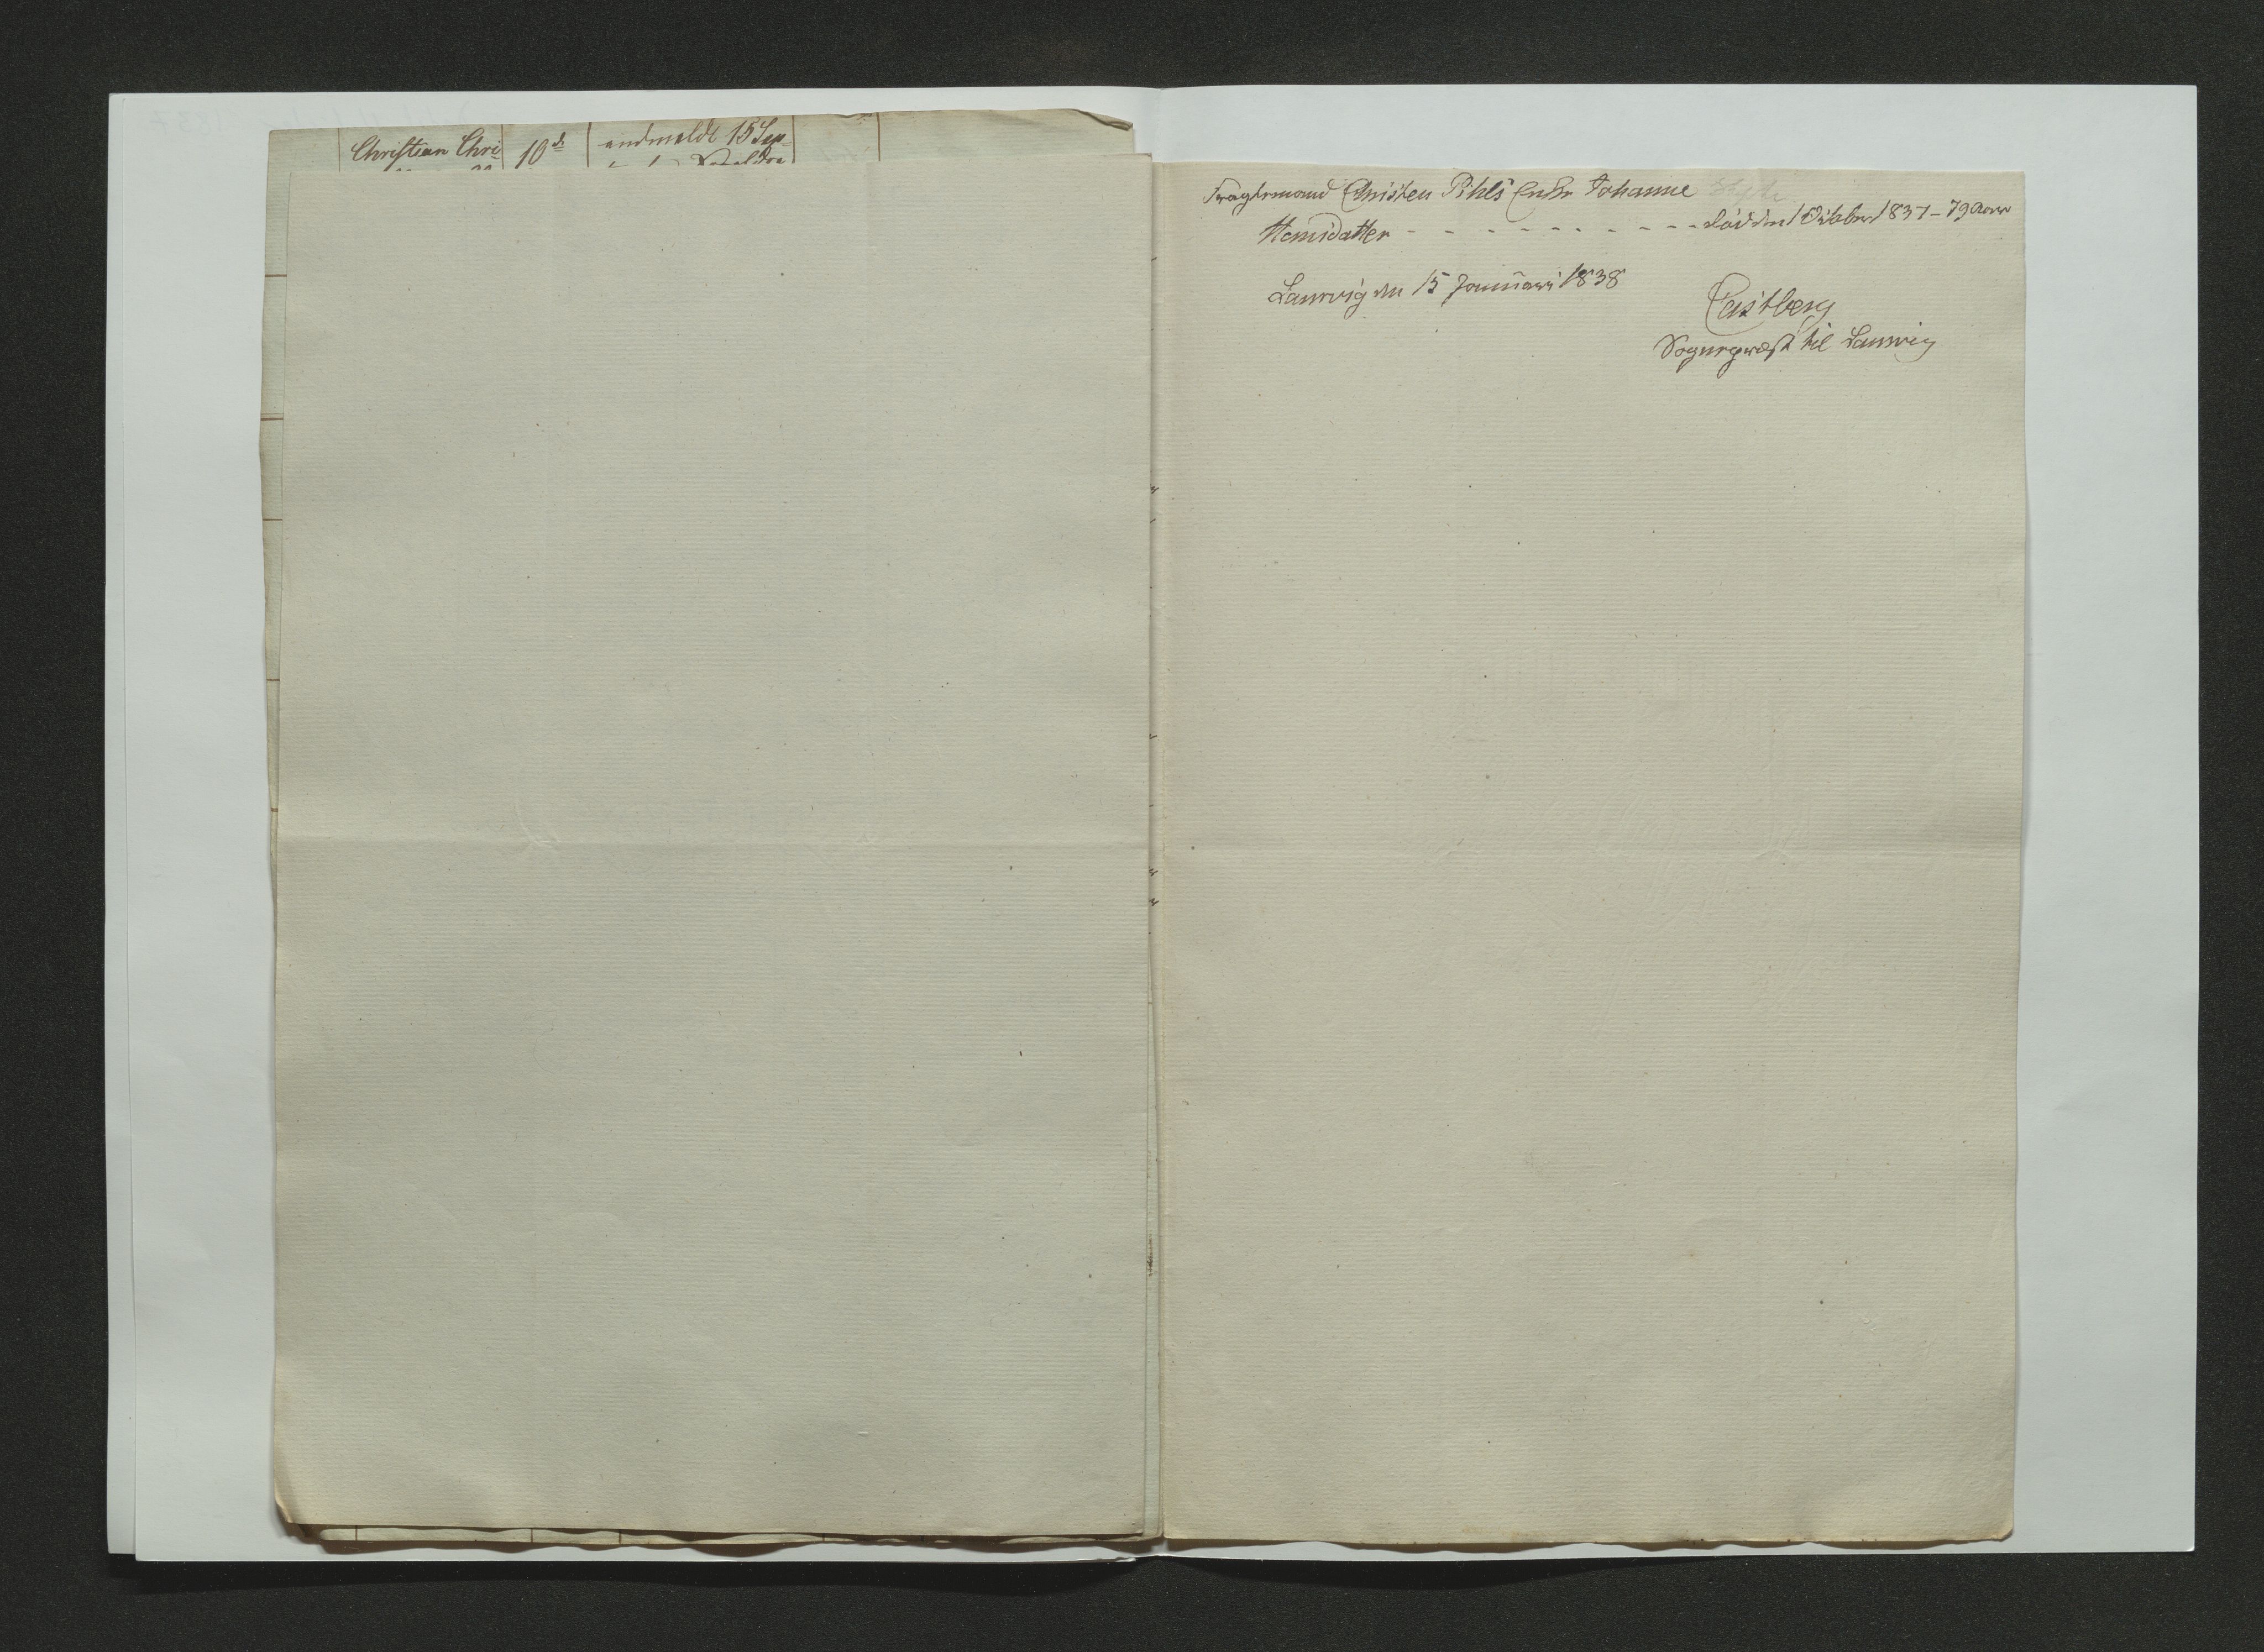 Christian Chri
10 d
andmeldt 15 Sep
Fragtmand Christen Pihls Enke Johanne
Hansdatter - - - - - - - - - - død den 1 October 1837 - 79 Aar
Laurvig den 15 Januari 1838
Castberg
Sogneprest til Laurvig